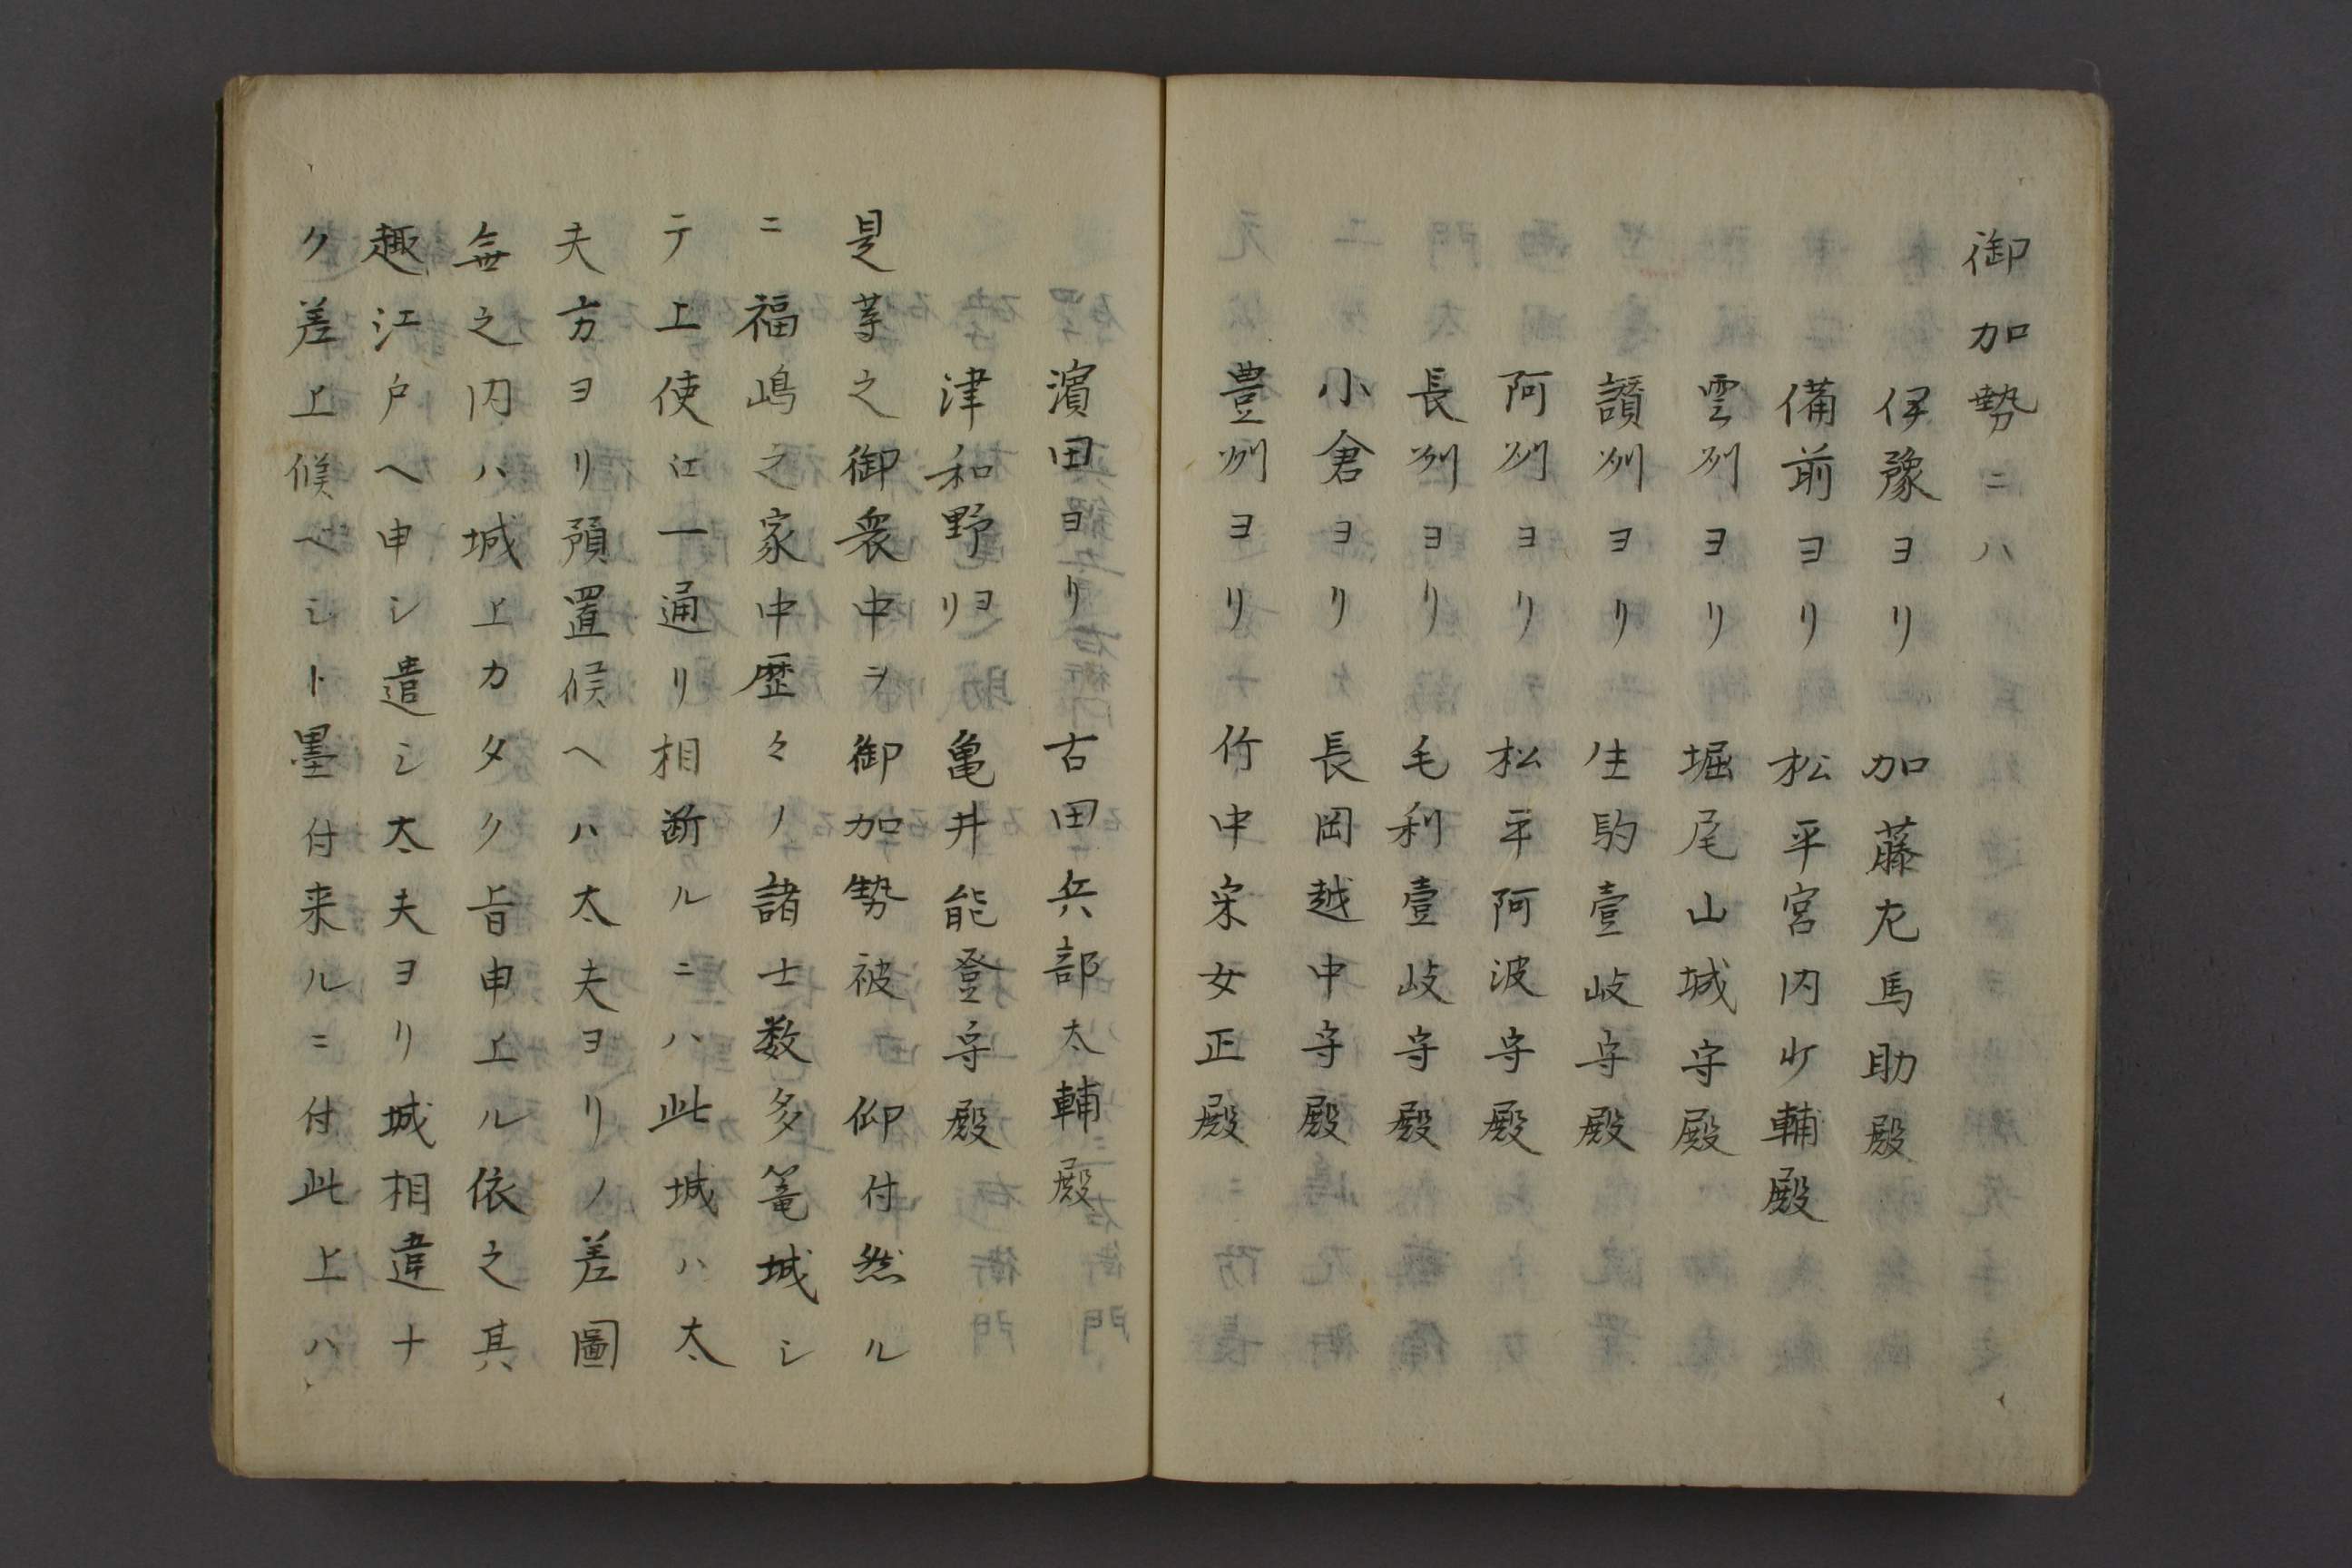 御加勢ニハ
伊豫ヨリ　加藤左馬助殿
備前ヨリ　松平宮内少輔殿
雲州ヨリ　堀尾山城守殿
讃州ヨリ　生駒壹岐守殿
阿州ヨリ　松平阿波守殿
長州ヨリ　毛利壹岐守殿
小倉ヨリ　長岡越中守殿
豊州ヨリ　竹中宋女正殿
濱田ヨリ　古田兵部太輔殿
津和野ヨリ　亀井能登守殿
是等之御衆中ヲ御加勢被　仰付然ル
ニ福嶋之家中歴々ノ諸士数多篭城シ
テ上使江一通リ相断ルニハ此城ハ太
夫方ヨリ預置候ヘハ太夫ヨリノ差圖
無之内ハ城上カタク旨申上ル依之其
趣江戸ヘ申シ遣シ太夫ヨリ城相違ナ
ク差上候ヘシト墨付来ルニ付此上ハ